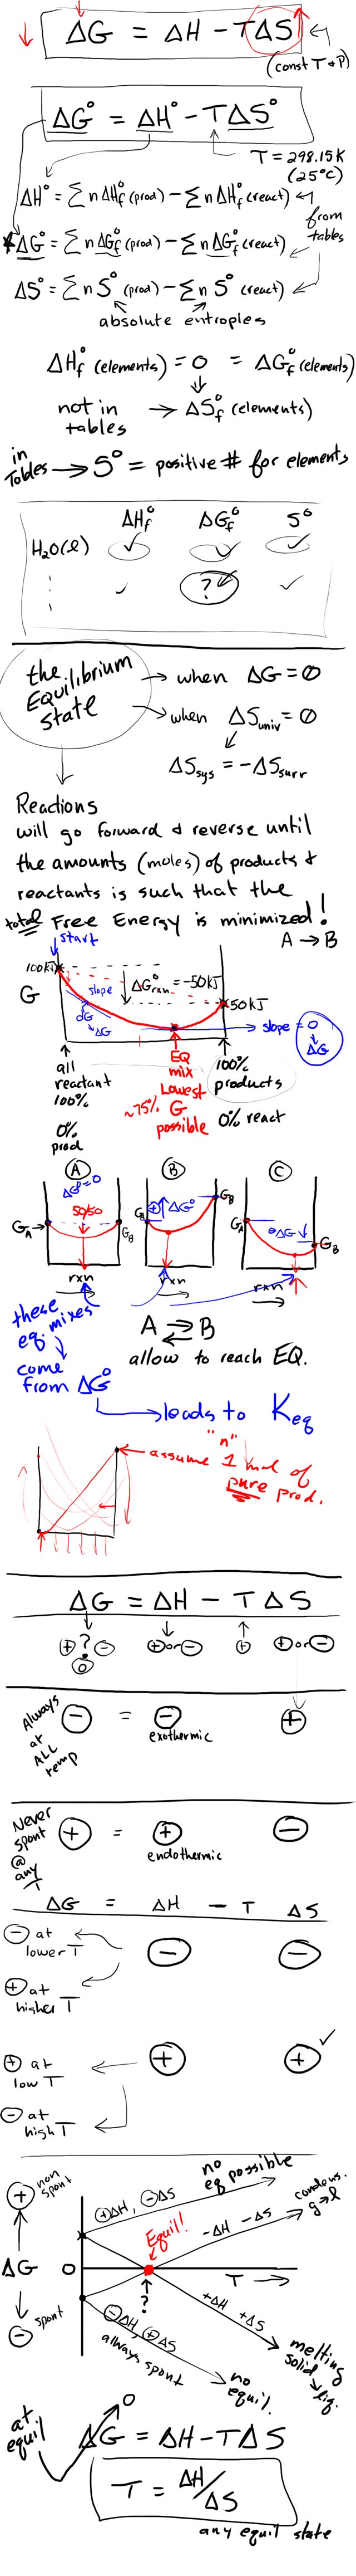 ΔG = ΔH - TΔS
(const T & P)
ΔG° = ΔH° - TΔS°
T = 298.15K
(25°C)
ΔH° = Σ n ΔHf° (prod) - Σ n ΔHf° (react)
from tables
*ΔG° = Σ n ΔGf° (prod) - Σ n ΔGf° (react)
ΔS° = Σ n S° (prod) - Σ n S° (react)
absolute entropies
ΔHf° (elements) = 0 = ΔGf° (elements)
not in tables → ΔSf° (elements)
in Tables → S° = positive # for elements
ΔHf° ΔGf° S°
H2O(l) ✓ ✓ ✓
✓ ? ✓
the Equilibrium state
→ when ΔG = 0
→ when ΔSuniv = 0
ΔSsys = -ΔSsurr
Reactions
will go forward & reverse until
the amounts (moles) of products &
reactants is such that the
total Free Energy is minimized!
start
A → B
100kJ
G
slope
dG
ΔG
ΔG°rxn = -50kJ
50kJ
slope = 0
ΔG
all reactant 100%
0% prod
EQ mix
Lowest G possible
~75%
100% products
0% react
A B C
ΔG°=0
50/50
GA GB
⊕ ΔG°
GA GB
⊖ΔG
GA GB
rxn rxn rxn
these eq. mixes
come from ΔG°
A ⇌ B
allow to reach EQ.
leads to Keq
"n"
assume 1 mol of
pure prod.
ΔG = ΔH - TΔS
⊕ ? ⊖ ⊕ or ⊖ ⊕ ⊕ or ⊖
0
Always at ALL temp
⊖ = ⊖ ⊕
exothermic
Never spont @ any T
⊕ = ⊕ ⊖
endothermic
ΔG = ΔH - T ΔS
⊖ at lower T
⊖ ⊖
⊕ at higher T
⊕ at low T
⊕ ⊕ ✓
⊖ at high T
⊕ non spont
ΔG
⊖ spont
0
⊕ΔH, ⊖ΔS
no eq possible
Equil!
-ΔH -ΔS
condens. g→l
T →
?
+ΔH +ΔS
melting
solid → liq.
⊖ΔH, ⊕ΔS
always spont
no equil.
at equil
0
ΔG = ΔH - TΔS
T = ΔH/ΔS
any equil state